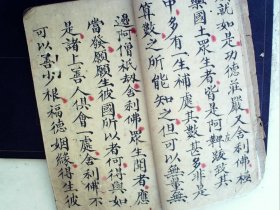 就如是功德莊嚴又舍利佛極
樂國土眾生者皆是阿鞞跋致其
中多有一生補處其數甚多非是
算數之所能知之但可以無量無
邊阿僧祇劫舍利佛眾生聞者應
當發願願生彼國所以者何得與如
是諸上善人俱會一處舍利佛不
可以善少根福德姻緣得生彼